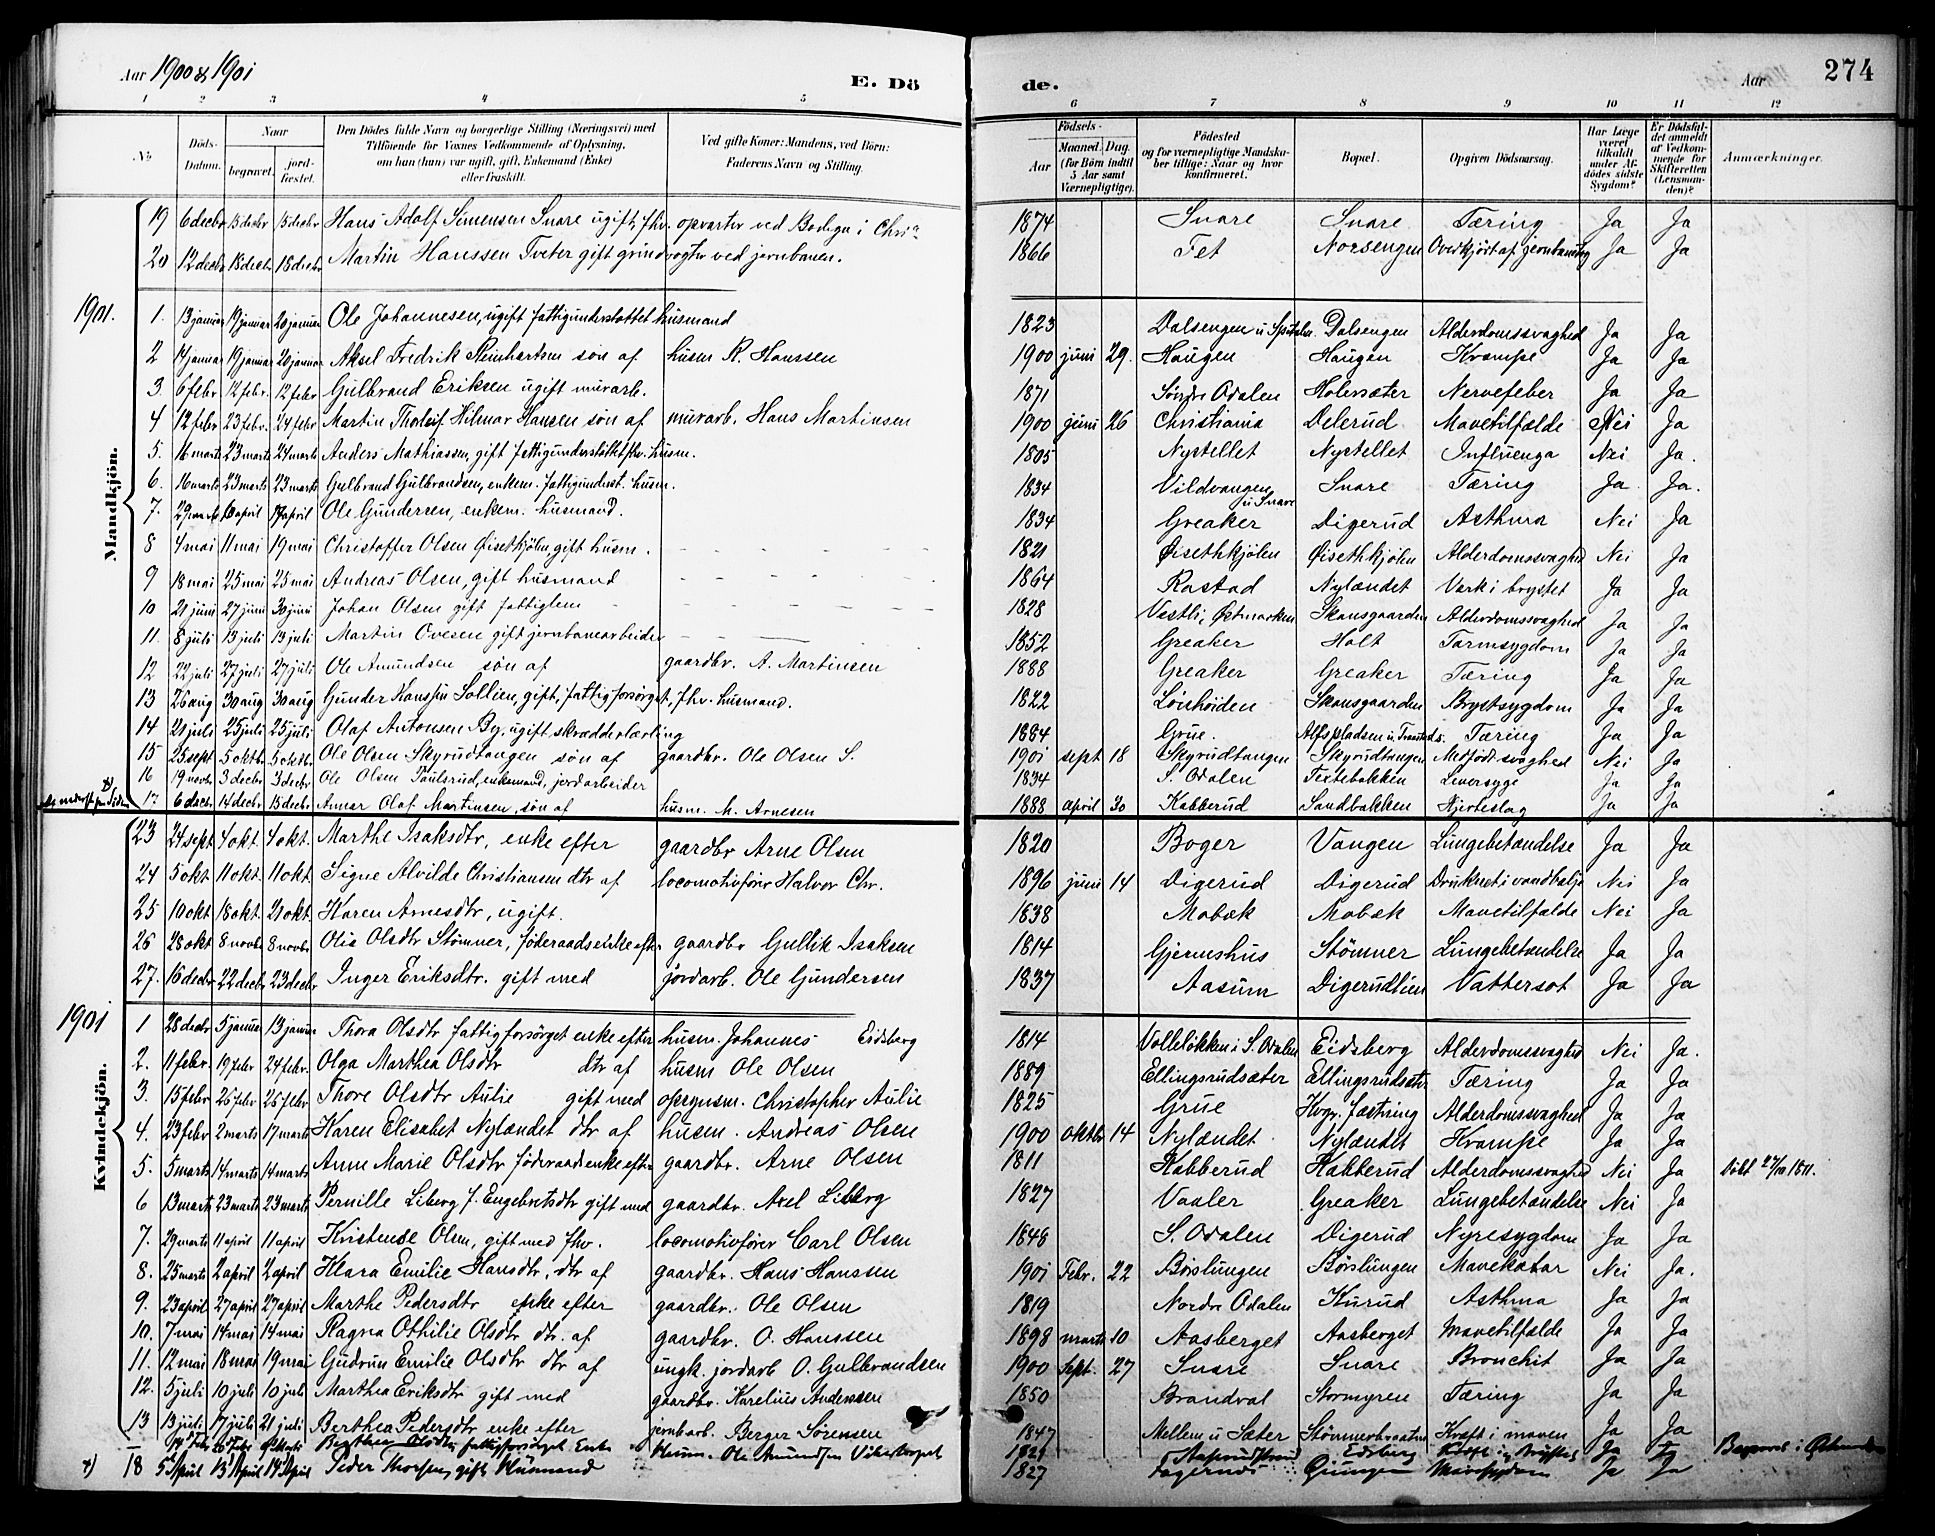 Aar 1900 & 1901
E. Dö
de.
Aar
274
1 2 3 4 5 6 7 8 9 10 11 12
No
Döds-Datum.
Naar begravet. jord-fæstet.
Den Dödes fulde Navn og borgerlige Stilling (Næringsvei) med Tilföiende for Voxnes Vedkommende af Oplysning, om han (hun) var ugift, gift, Enkemand (Enke) eller fraskilt.
Ved gifte Koner: Mandens, ved Börn: Faderens Navn og Stilling.
Födsels-
Aar
Maaned. Dag. (for Börn indtil 5 Aar samt Værnepligtige).
Födested og for værnepligtige Mandskaber tillige: Naar og hvor konfirmeret.
Bopæl.
Opgiven Dödsaarsag.
Har Læge været tilkaldt under Afdödes sidste Sygdom?
Er Dödsfaldet anmeldt af Vedkommende for Skifteretten (Lensmanden)?
Anmærkninger.
Mandkjön.
19 6 decbr 15 decbr 15 decbr Hans Adolf Simensen Snare ugift, fhv. opvarter ved Bodega i Chr.ia 1874 Snare Snare Tæring Ja Ja
20 12 decbr 18 decbr 18 decbr Martin Hanssen Tveter gift grindvogter ved jernbanen. 1866 Fet Norsengen Overkjørt af jernbanetog Ja Ja
1901.
1. 13 januar 19 januar 20 januar Ole Johannesen, ugift fattigunderstøttet husmand 1823 Dalsengen u. Spitalen Dalsengen Alderdomssvaghed Ja Ja
2 14 januar 19 januar 20 januar Aksel Fredrik Reinhartsen søn af husm R. Hanssen 1900 juni 29. Haugen Haugen Krampe Ja Ja
3 6 febr. 12 febr. 12 febr Gulbrand Eriksen ugift murarb. 1871 Søndre Odalen Holersæter Nervefeber Ja Ja
4 12 febr 23 febr. 24 febr Martin Thorleif Hilmar Hansen søn af murarb. Hans Martinsen 1900 juni 26 Christiania Delerud Mavetilfælde Nei Ja
5. 16 marts 23 marts 24 marts Anders Mathiassen, gift fattigunderstøttet fhv. husm. 1805 Nystellet Nystellet Influenza Nei Ja.
6. 16 marts 23 marts 23 marts Gulbrand Gulbrandsen, enkem. fattigunderst. husm. 1834 Vildvangen u Snare Snare Tæring Ja Ja.
7. 29 marts 10 april 14 april Ole Gundersen, enkem. husmand. 1834 Greaker Digerud Asthma Nei Ja
8 4 mai 11 mai 19 mai Christoffer Olsen Øisethkjølen, gift husm. 1821 Øisethkjølen Øisethkjølen Alderdomssvaghed Nei Ja
9 18 mai 25 mai 25 mai Andreas Olsen, gift husmand 1864 Rastad Nylændet Værk i brystet Ja Ja
10 21 juni 27 juni 30 juni Johan Olsen gift fattiglem 1828 Vestli, Østmarken Skansgaarden Alderdomssvaghed Ja Ja
11. 8 juli 13 juli 13 juli Martin Ovesen gift jernbanearbeider 1852 Greaker Holt Tarmsygdom Ja Ja
12 22 juli 27 juli 27 juli Ole Amundsen søn af gaardbr. A. Martinsen 1888 Greaker Greaker Tæring Ja Ja
13 26 aug 30 aug 30 aug Gunder Hanssen Sollien, gift, fattigforsørget, fhv. husmand. 1822 Lørshöiden Skansgaarden Brystsygdom Ja Ja
14 20 juli 25 juli 25 juli Olaf Antonsen By, ugift skrædderlærling 1884 Grue. Alfspladsen u. Tæring Ja Ja
15 25 sept 5 oktbr. 5 oktbr. Ole Olsen Skyrudtangen søn af gaardbr. Ole Olsen S. 1901 sept 18 Skyrudtangen Skyrudtangen Medfødt svaghed Nei Ja
16 19 novbr 3 decbr 3 decbr Ole Olsen Taulsrud, enkemand, jordarbeider 1834 S. Odalen Textebakken Leversyge Ja Ja
17 6 decbr 14 decbr 15 decbr Annar Olaf Martinsen, søn af husm. M. Arnesen 1888 april 30 Kabberud Sandbakken Hjerteslag Ja Ja
Kvindekjön.
23 24 sept 4 okt. 4 okt. Marthe Isaksdtr, enke efter gaardbr Arne Olsen 1820 Boger Vangen Lungebetændelse Ja Ja
24 5 okt 11 okt. 11 okt. Signe Alvilde Christiansen dtr af locomotivfører Halvor Chr. 1896 juni 14 Digerud Digerud Druknet i vandbalje Nei Ja
25 10 okt 18 okt. 20 okt. Karen Arnesdtr, ugift. 1838 Mobæk Mobæk Mavetilfælde Nei Ja
26 28 okt 8 novbr 8 novbr. Olia Olsdtr Stømner, føderaadsenke efter gaardbr Gullik Isaksen 1814 Gjerneshus Stömner Lungebetændelse Ja Ja
27. 16 decbr 22 decbr 23 decbr Inger Eriksdtr. gift med jordarb. Ole Gundersen 1837 Aasum Digerudlien Vattersot Ja Ja
1901
1 28 decbr 5 januar 13 januar Thora Olsdtr fattigforsørget enke efter husm. Johannes Eidsberg 1814 Volleløkken i S. Odalen Eidsberg Alderdomssvaghed Nei Ja.
2. 11 febr. 19 febr 24 febr. Olga Marthea Olsdtr dtr af husm Ole Olsen 1889 Ellingsrudsæter Ellingsrudsætr Tæring Ja Ja
3. 15 febr 26 febr 26 febr Thore Olsdtr Aulie gift med opsynsm. Christopher Aulie 1825 Grue Kvgr. fæstning Alderdomssvaghed Ja Ja
4. 23 febr 2 marts 17 marts Karen Elisabet Nylændet dtr af husm. Andreas Olsen 1900 oktbr 14 Nylændet Nylændet Krampe Ja Ja
5. 5 marts 14 marts 14 marts Anne Marie Olsdtr føderaadsenke efter gaardbr. Arne Olsen 1811 Kabberud Kabberud Alderdomssvaghed Nei Ja
6 13 marts 23 marts 23 marts Pernille Liberg f. Engebretsdtr gift med gaardbr. Axel Liberg 1827 Vaaler Greaker Lungebetændelse Nei Ja
7. 29 marts 11 april 11 april Kristense Olsen, gift med fhv. locomotivfører Carl Olsen 1848 S. Odalen Digerud Nyresygdom Ja Ja
8. 25 marts 2 april 2 april Klara Emilie Hansdtr, dtr af gaardbr. Hans Hanssen 1901 Febr. 22 Börslungen Börslungen Mavekatar Nei Ja.
9. 23 april 27 april 27 april Marthe Pedersdtr enke efter gaardbr. Ole Olsen 1819 Nordre Odalen Kurud Asthma Ja Ja
10. 7 mai 14 mai 14 mai Ragna Othilie Olsdtr dtr. af gaardbr. O. Hanssen 1898 marts 10 Aasberget Aasberget Mavetilfælde Ja Ja
11. 12 mai 18 mai 19 mai Gudrun Emilie Olsdtr dtr af ungk. jordarb O. Gulbrandsen 1900 Sept. 27 Snare Snare Bronchit Ja Ja
12. 5 juli 10 juli 10 juli Marthea Eriksdtr gift med gaardbr. Karelius Andersen 1850 Brandval Stormyren Tæring Ja Ja
13 13 juli 17 juli 21 juli Berthea Pedersdtr enke efter jernbarb. Berger Sörensen 1847 Mellem u Sæter Stömnerbraaten Kræft i maven Ja Ja
Berthea Olsdtr fattigforsørget Enke Husm. Ole Amundsen Eidsberg Ja Ja
18 5 April 13 April 14 April Peder gift Husmand 1827 Fagernes Mavesygdom Ja Ja